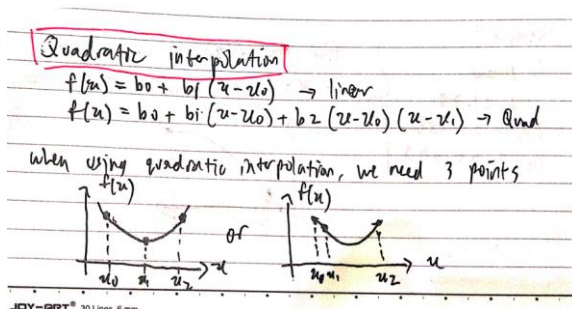 Quadratic interpolation
f(x) = b0 + b1 (x-x0) → linear
f(x) = b0 + b1 (x-x0) + b2 (x-x0) (x-x1) → Quad
when using quadratic interpolation, we need 3 points
f(x)
x0 x1 x2 x
or
f(x)
x0 x1 x2 x
JOY-ART® 30 Lines, 6 mm